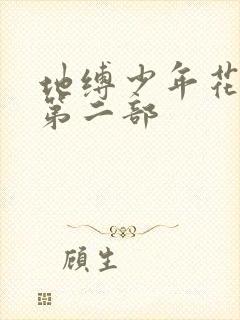 地缚少年花
第二部
顾生